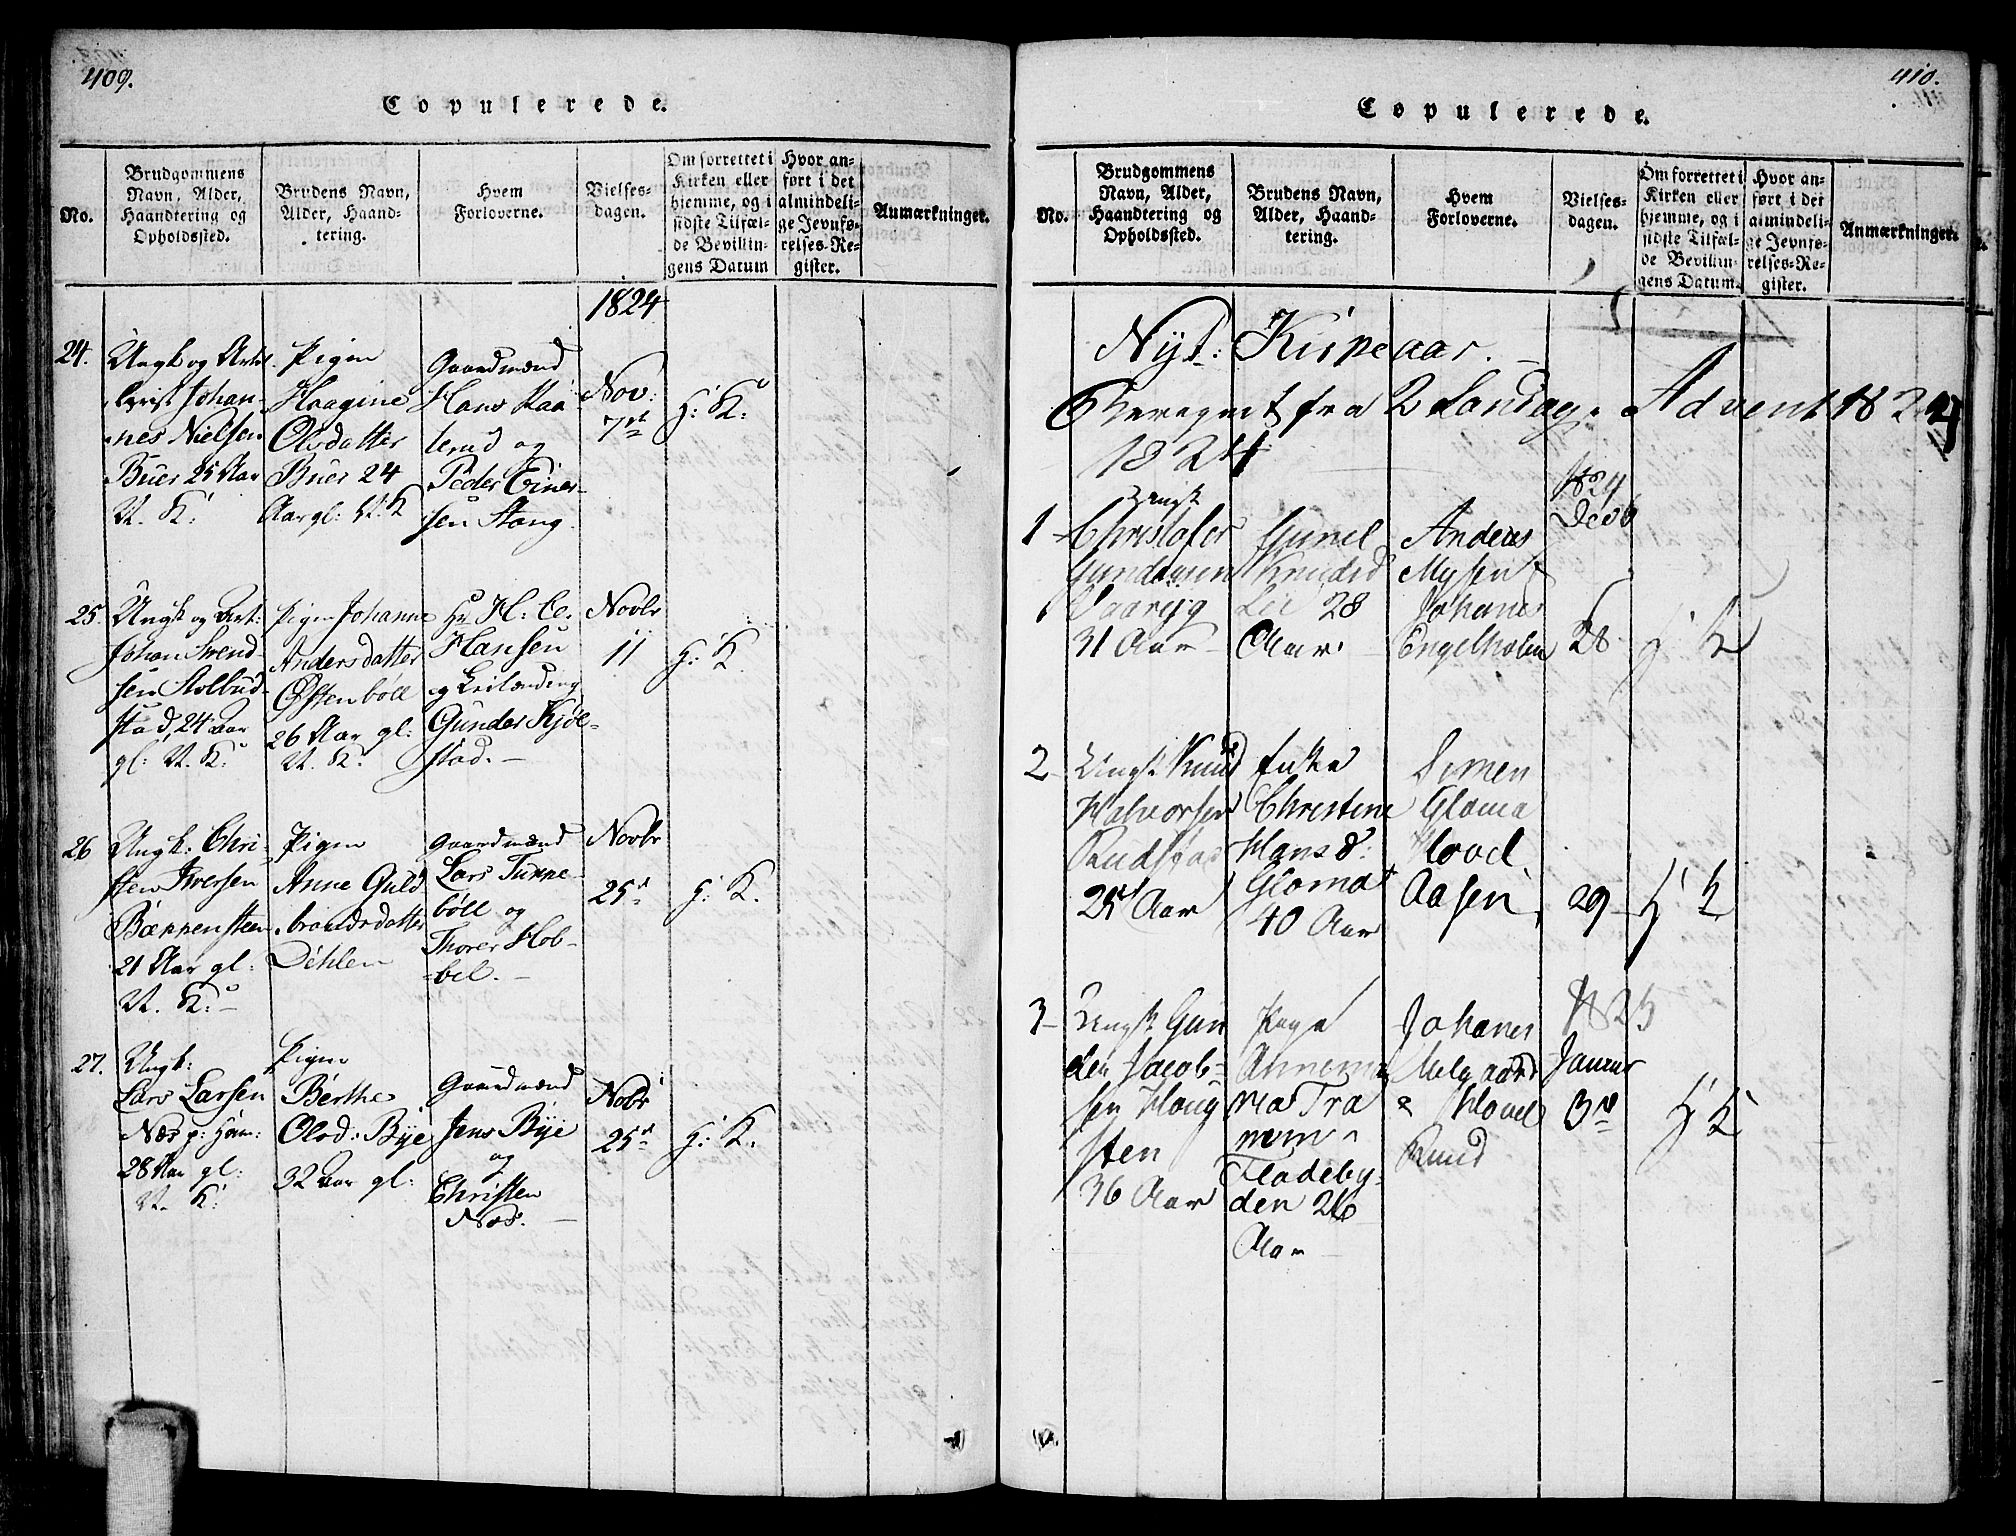 409.
Copulerede.
No.
Brudgommens
Navn, Alder,
Haandtering og
Opholdssted.
Brudens Navn,
Alder, Haand-
tering.
Hvem
Forloverne.
Vielses-
dagen.
Om forrettet i
Kirken eller
hjemme, og i
sidste Tilfæl-
de Bevillin-
gens Datum
Hvor an-
ført i det
almindeli-
ge Jevnfø-
relses-Re-
gister.
Anmærkninger.
1824
24.
Ungk og
Johan-
nes Nielsen
Buer 25 Aar
V. K:
Pigen
Haagine
Olsdatter
Buer 24
Aar gl: V. K
Gaardmænd
Hans
og
Peder Einer-
sen Stang.
Nov:
7de
H: K:
25.
Ungk og
Johan Svend
sen Stolbud-
stad, 24 Aar
gl: V. K:
Pigen Johanne
Andersdatter
Østenböll
26 Aar gl:
V. K.
Hr H: C.
Hansen
og
Gunder Kjöl-
stad. -
Novbr
11
H: K.
26
Ungk: Chri-
sten Iversen
21 Aar gl:
V. K: -
Pigen
Anne Guld
brandsdatter
Dehlen
Gaardmænd
Lars Tukke-
böll og
Thorer Hob-
bel. -
Novbr
25de
H: K.
27.
Ungk:
Lars Larsen
Næs p: Hem:
28 Aar gl:
V. K:
Pigen
Berthe
Olsd: Bye
32 Aar gl:
Gaardmænd
Jens Bye
og
Christen
Næs. -
Nobr
25de
H: K.
410.
Copulerede.
No.
Brudgommens
Navn, Alder,
Haandtering og
Opholdssted.
Brudens Navn,
Alder, Haand-
tering.
Hvem
Forloverne.
Vielses-
dagen.
Om forrettet i
Kirken eller
hjemme, og i
sidste Tilfæl-
de Bevillin-
gens Datum.
Hvor an-
ført i det
almindeli-
ge Jevnfø-
relses-Re-
gister.
Anmærkninger.
Nyt: Kirkeaar. -
Beregnet fra 2 Søndag i Advent 1824
1824
1
Ungk
Christofer
Gundersen
31 Aar
Gunel
Knudsd
Lie 28
Aar.
Anders
Mysen &
Johannes
Engelholm
1824
Decb
28
H K
2
Ungk Knud
Halvorsen
Rudstad
25 Aar
Enke
Christine
Hans d:
Gloma
40 Aar
Simen
Gloma
Hovel
Aasen
29
H K
3
Ungk Gun
der Jacob-
sen Houg
sten
36 Aar
Pige
Annema
ria Tra
nem
Fladeby-
den 26
Aar
Johanes
Melgaard
& Hovel
Ruud
1825
Januar
3de
H K